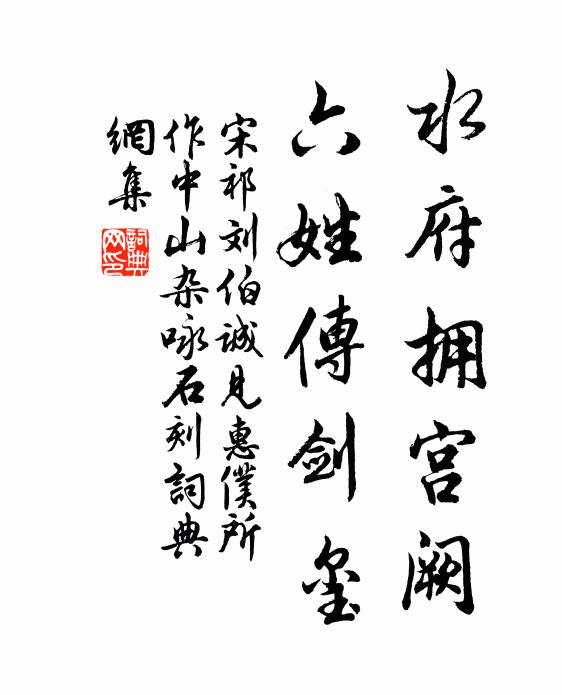 水府拥宫阙
六姓傳剑玺
宋祁刘伯诚见惠僕所
作中山杂咏石刻詞典
網集
詞典
网印